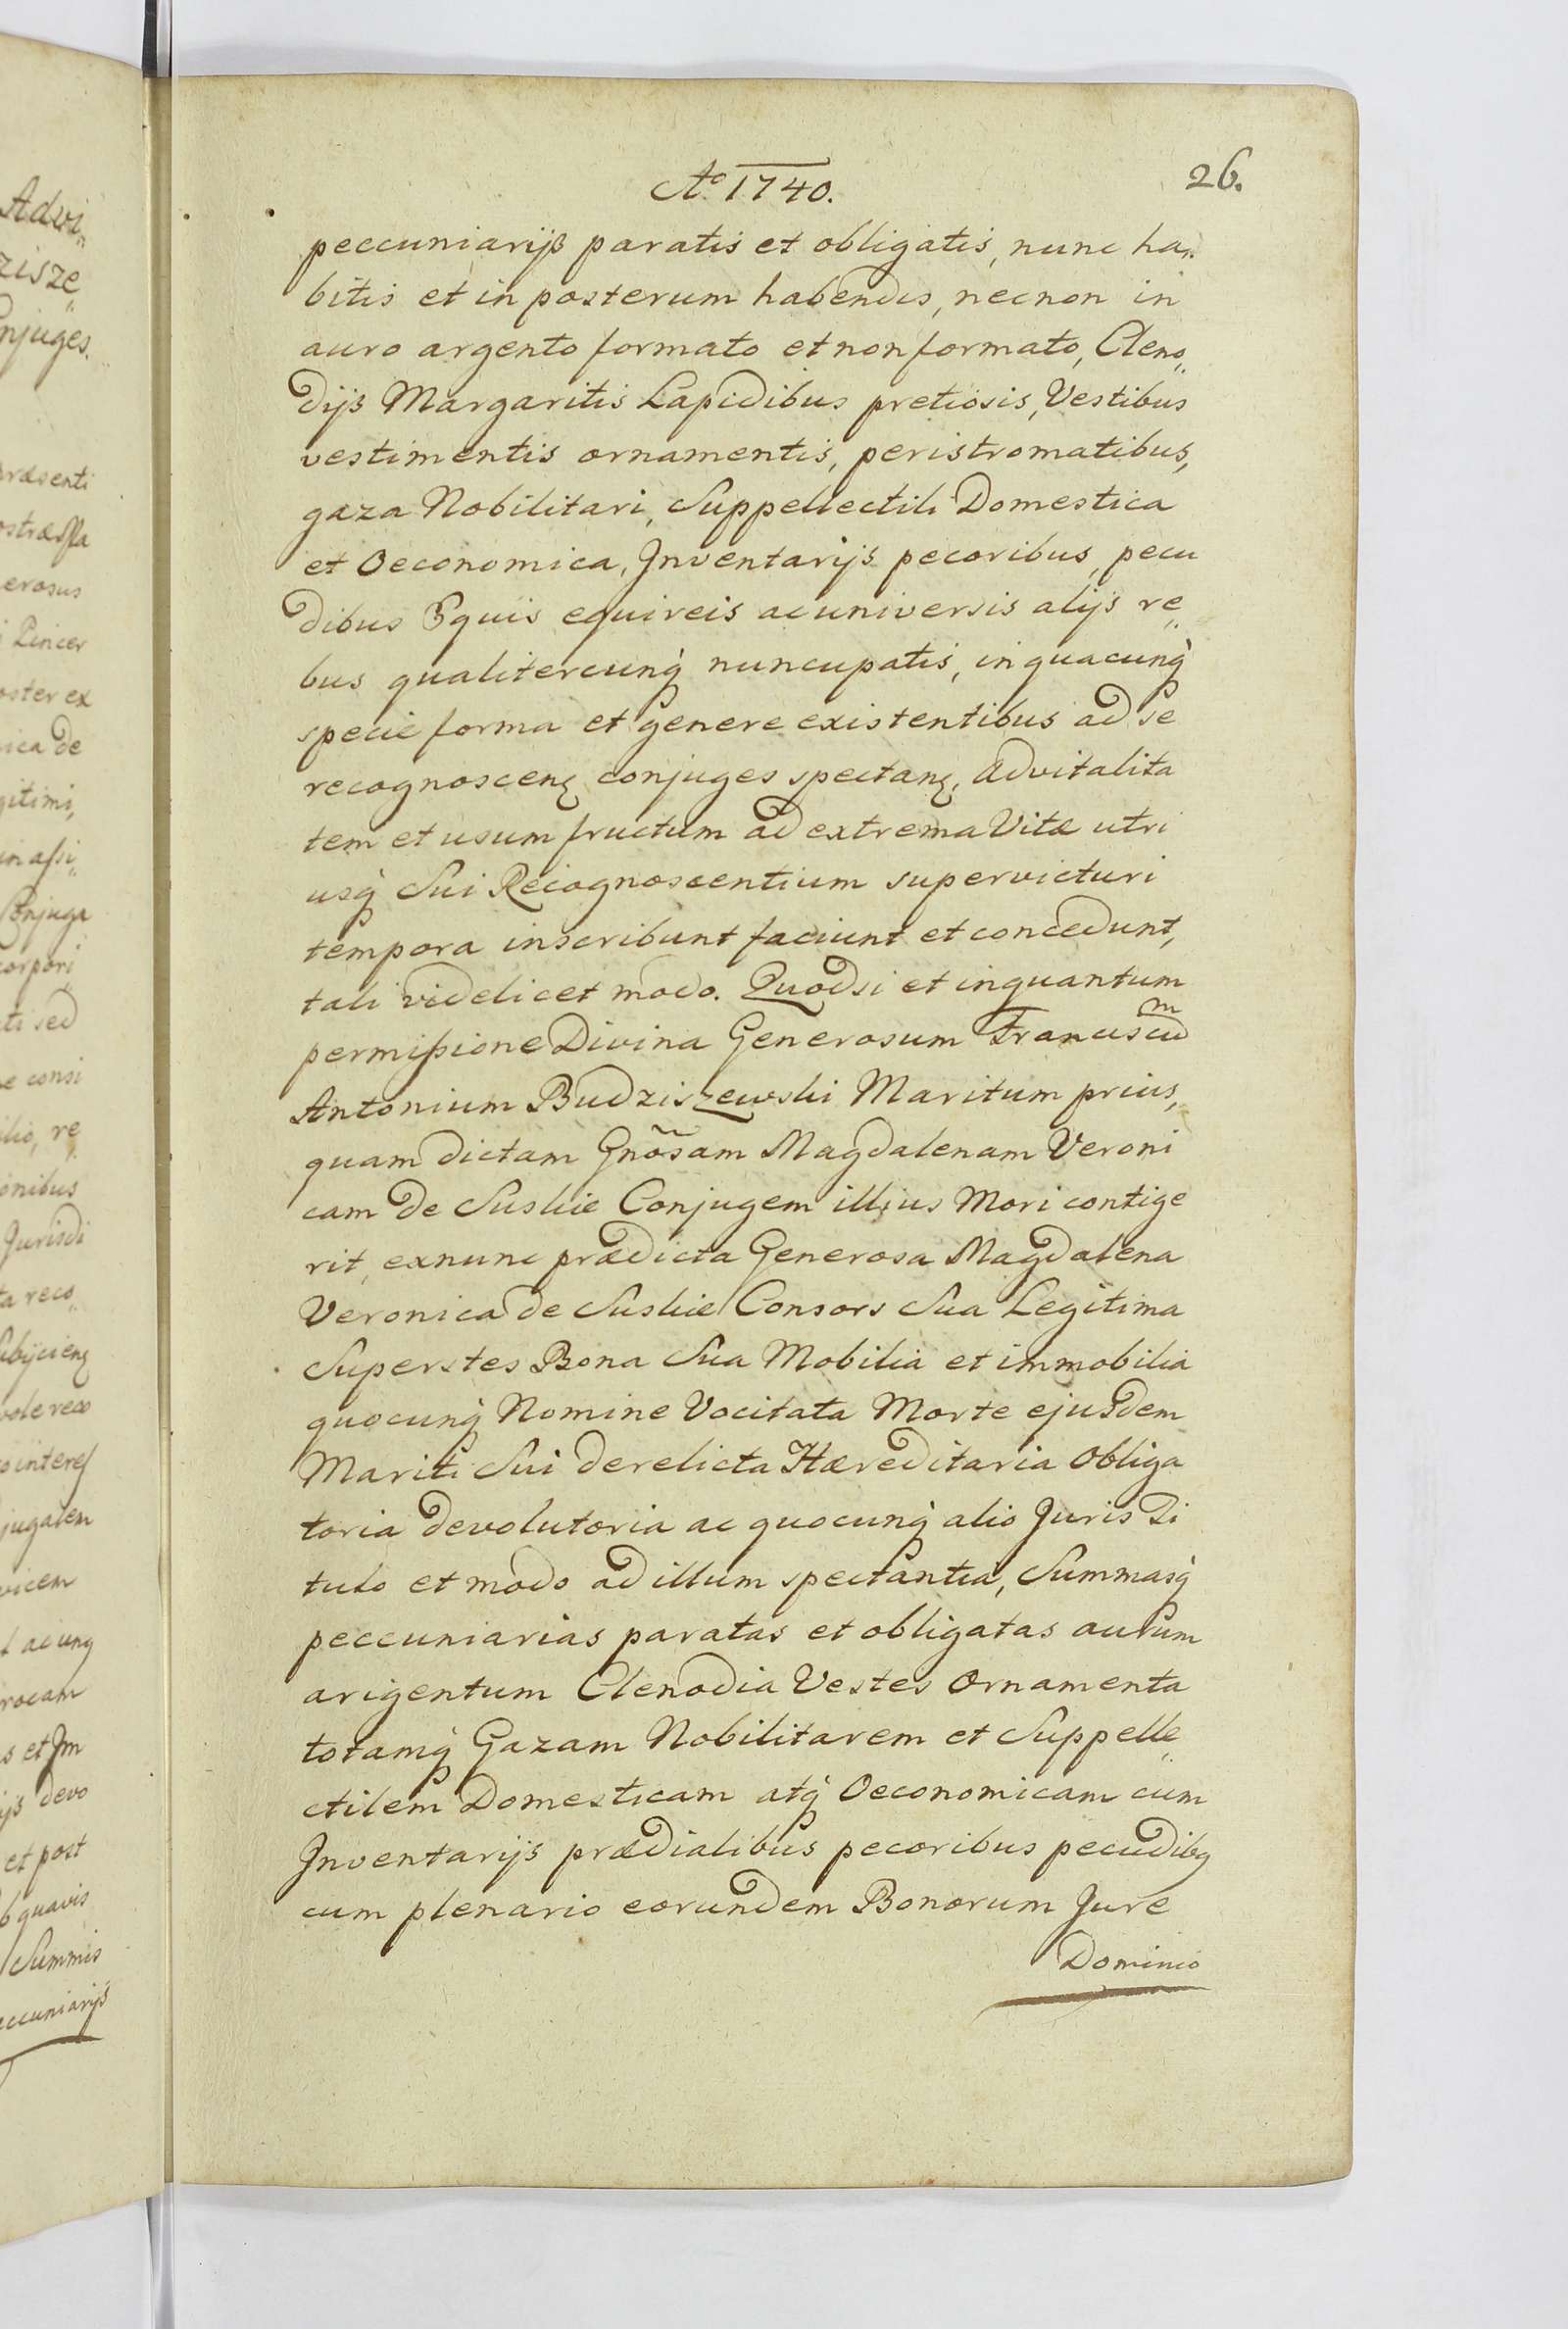 Aº 1740.
26.
peccuniarijs paratis et obligatis, nunc ha„
bitis et in posterum habendis, necnon in
auro argento formato et non formato, Cleno„
dijs Margaritis Lapidibus pretiosis, Vestibus
vestimentis ornamentis, peristromatibus,
gaza Nobilitari, Suppellectili Domestica
et Oeconomica, Inventarijs pecoribus, pecu
dibus Equis equireis ac universis alijs re„
bus qualitercunq̀ nuncupatis, in quacunq̀
specie forma et genere existentibus ad se
recognoscenꝫ conjuges spectanꝫ, Advitalita
tem et usum fructum ad extrema Vitæ utri
usq̀ Sui Recognoscentium supervicturi
tempora inscribunt faciunt et concedunt,
tali videlicet modo. Quodsi et inquantum
permissione Divina Generosum Franciscuᵐ
Antonium Budziszewski Maritum prius„
quam dictam Gnõsam Magdalenam Veroni
cam de Suskie Conjugem illius Mori contige
rit, exnunc prædicta Generosa Magdalena
Veronica de Suskie Consors Sua Legitima
Superstes Bona Sua Mobilia et immobilia
quocunq̀ Nomine Vocitata Morte ejusdem
Mariti Sui derelicta Hæreditaria Obliga
toria devolutoria ac quocunq̀ alio Juris Ti
tulo et modo ad illum spectantia, Summasq̀
peccuniarias paratas et obligatas aurum
arigentum Clenodia Vestes Ornamenta
totamq̀ Gazam Nobilitarem et Suppelle„
ctilem Domesticam atq̀ Oeconomicam cum
Inventarijs prædialibus pecoribus pecudibꝫ
cum plenario eorundem Bonorum Jure
Dominio